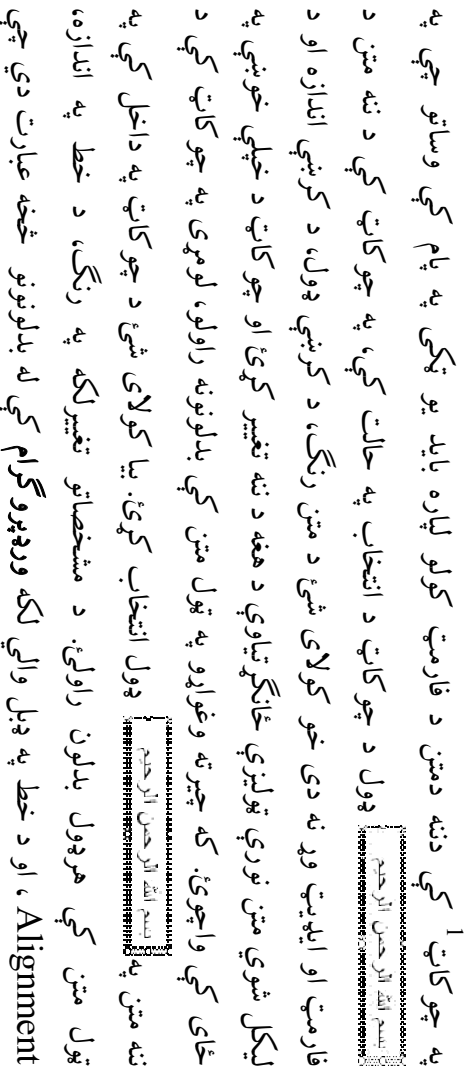 په چوکاټ1 کي دننه دمتن د فارمټ کولو لپاره بايد يو ټکی په پام کي وساتو چي په
بسم الله الرحمن الرحيم ډول د چوکاټ د انتخاب په حالت کي، په چوکاټ کي د ننه متن د
فارمټ او ايډيټ وړ نه دی خو کولای شئ د متن رنګ، د کرښي ډول، د کرښي اندازه او د
ليکل شوي متن نوري ټوليزي ځانګړتياوي د هغه د ننه تغيير کړئ او چوکاټ د خپلي خوښي په
ځای کي واچوئ. که چيرته وغواړو په ټول متن کي بدلونونه راولو، لومړی په چوکاټ کي د
ننه متن په بسم الله الرحمن الرحيم ډول انتخاب کړئ. بيا کولای شئ د چوکاټ په داخل کي په
ټول متن کي هرډول بدلون راولئ. د مشخصاتو تغييرلکه په رنګ، د خط په اندازه،
Alignment ، او د خط په ډبل والي لکه ورډپروګرام کي له بدلونونو څخه عبارت دي چي